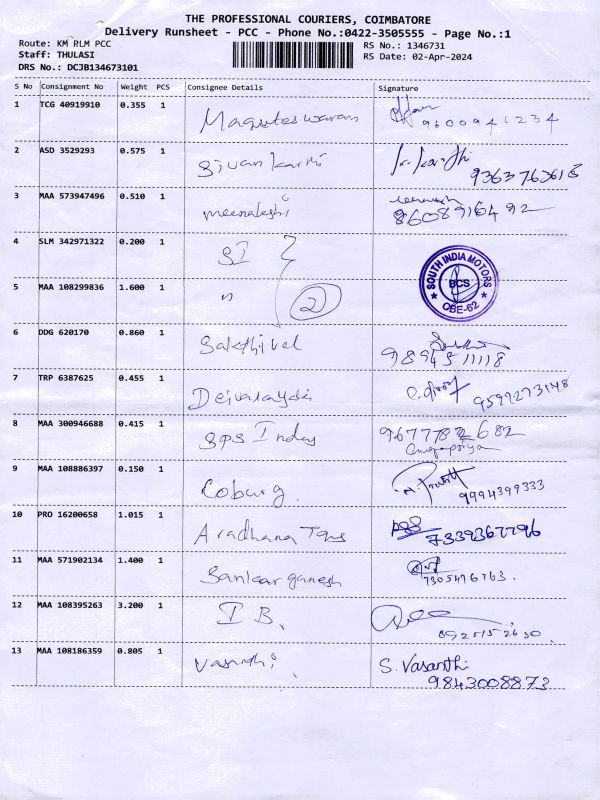 THE PROFESSIONAL COURIERS, COIMBATORE
Delivery Runsheet - PCC - Phone No.:0422-3505555 - Page No.:1
Route: KM RLM PCC
RS No.: 1346731
Staff: THULASI
RS Date: 02-Apr-2024
DRS No.: DCJB134673101
S No Consignment No Weight PCS Consignee Details Signature
1 TCG 40919910 0.355 1 Maguteswaran
9600941234
2 ASD 3529293 0.575 1 Sivan karthi
9363763613
3 MAA 573947496 0.510 1 meenakshi
8608916492
4 SLM 342971322 0.200 1 SI
5 MAA 108299836 1.600 1 " 2
SOUTH INDIA MOTORS
BCS
CBE-62
6 DDG 620170 0.860 1 Sakthivel
9894511118
7 TRP 6387625 0.455 1
8 MAA 300946688 0.415 1 SPS Indus
682
9 MAA 108886397 0.150 1 Coburg.
9994399333
10 PRO 16200658 1.015 1 Aradhana Tops
7339367796
11 MAA 571902134 1.400 1 Sankar ganesh
7305476763.
12 MAA 108395263 3.200 1 I B.
13 MAA 108186359 0.805 1 Vasanthi
S. Vasanthi
9843008873